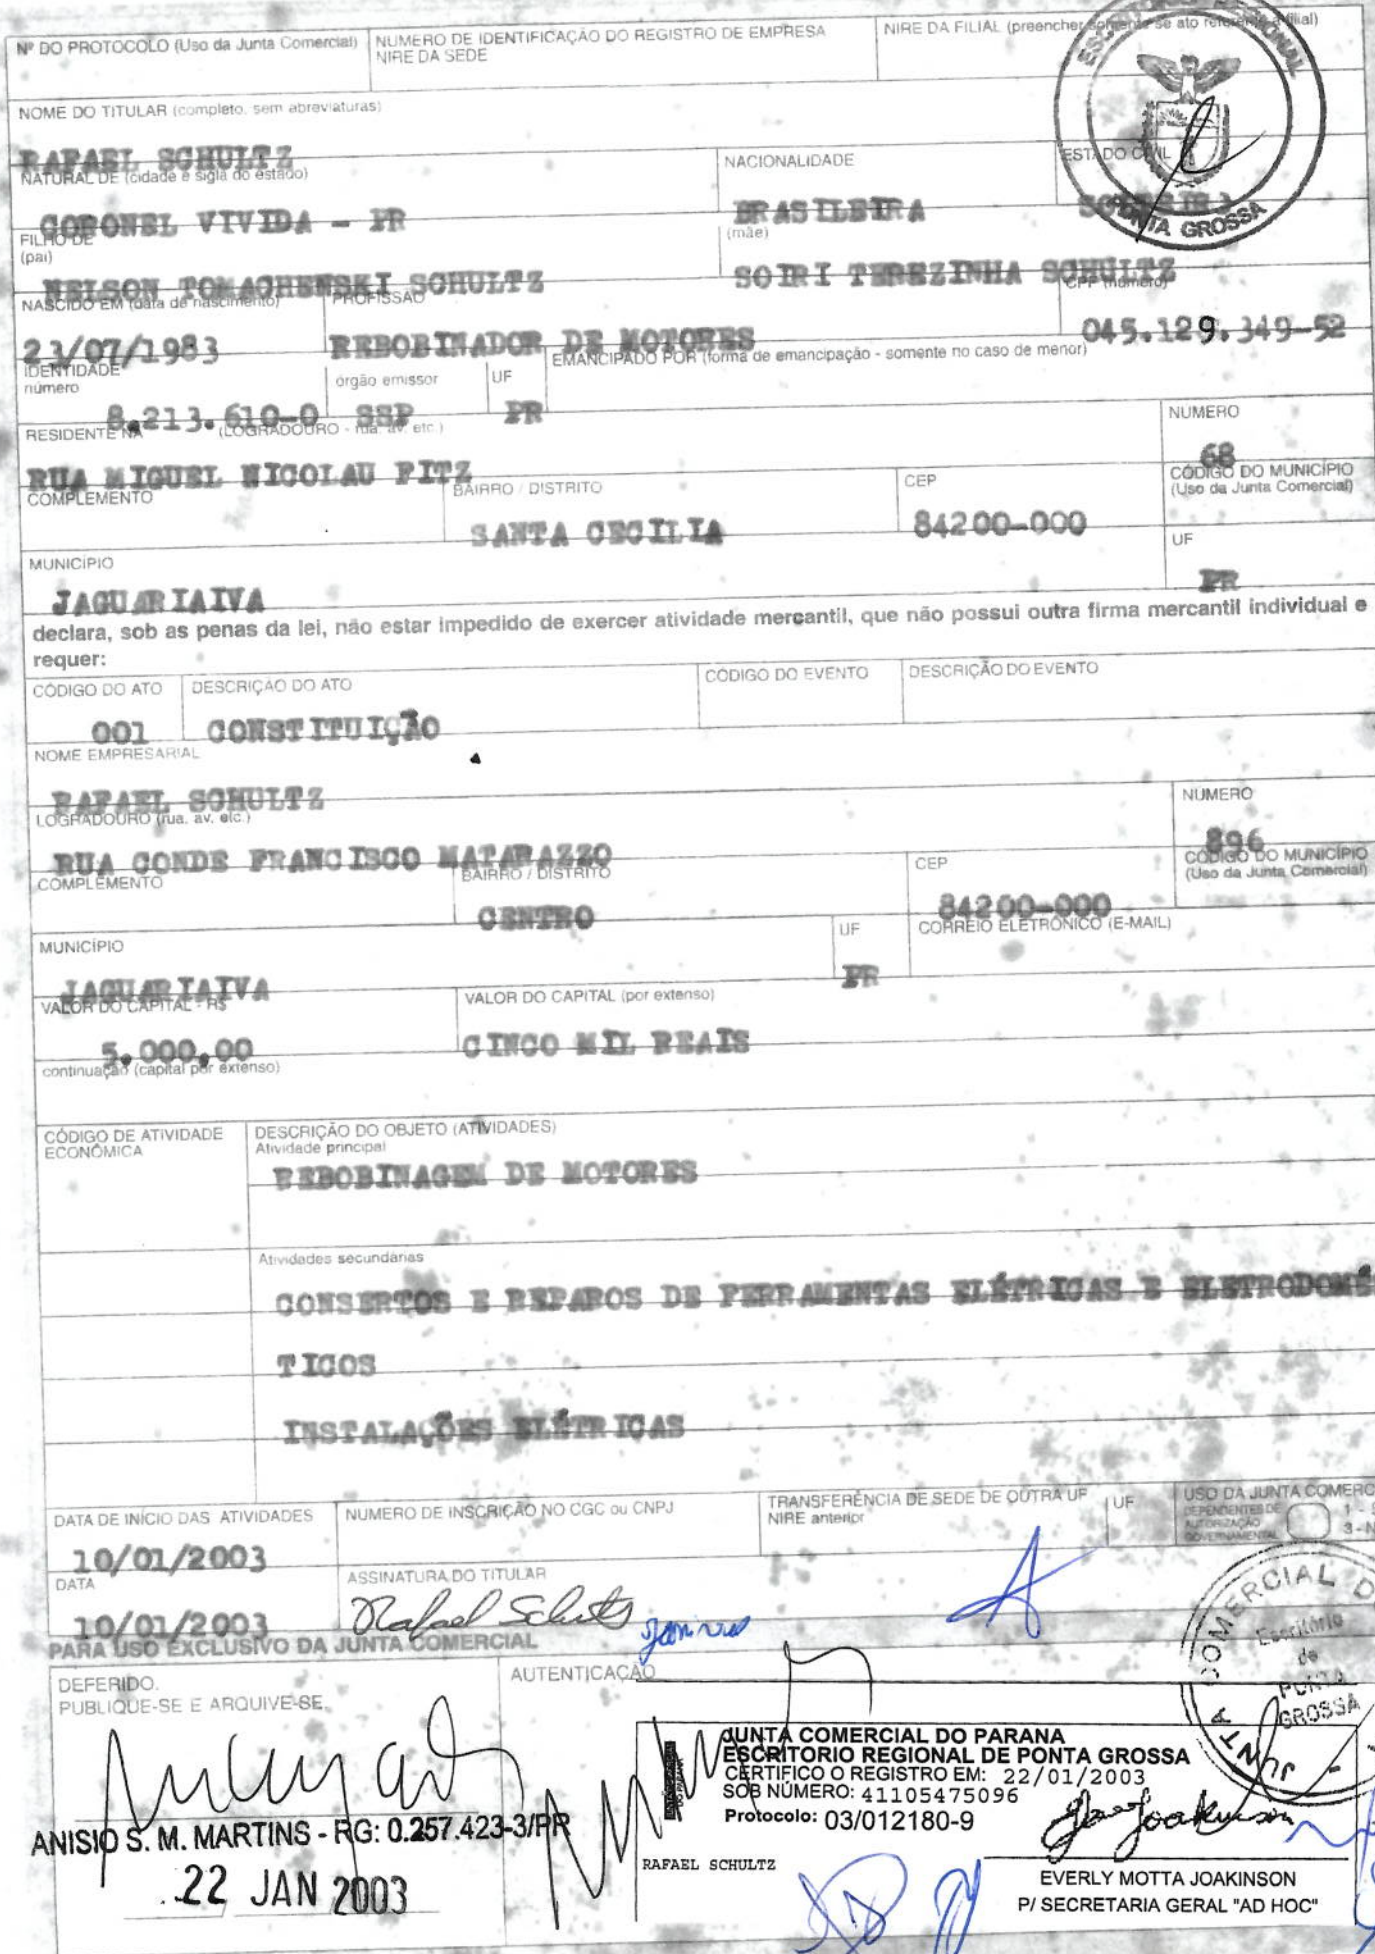 Nº DO PROTOCOLO (Uso da Junta Comercial)
NUMERO DE IDENTIFICAÇÃO DO REGISTRO DE EMPRESA
NIRE DA SEDE
NIRE DA FILIAL (preencher somente se ato referente a filial)
NOME DO TITULAR (completo, sem abreviaturas)
RAFAEL SCHULTZ
NATURAL DE (cidade e sigla do estado)
CORONEL VIVIDA - PR
NACIONALIDADE
BRASILEIRA
ESTADO CIVIL
PONTA GROSSA
FILHO DE
(pai)
NELSON TOMACHENSKI SCHULTZ
(mãe)
SOIRI TEREZINHA SCHULTZ
NASCIDO EM (data de nascimento)
23/07/1983
PROFISSÃO
REBOBINADOR DE MOTORES
CPF (número)
045.129.349-52
IDENTIDADE
número
8.213.610-0
órgão emissor
SSP
UF
PR
EMANCIPADO POR (forma de emancipação - somente no caso de menor)
RESIDENTE NA (LOGRADOURO - rua. av. etc.)
RUA MIGUEL NICOLAU FITZ
NUMERO
68
COMPLEMENTO
BAIRRO / DISTRITO
SANTA CECILIA
CEP
84200-000
CÓDIGO DO MUNICÍPIO
(Uso da Junta Comercial)
MUNICÍPIO
JAGUARIAIVA
UF
PR
declara, sob as penas da lei, não estar impedido de exercer atividade mercantil, que não possui outra firma mercantil individual e
requer:
CÓDIGO DO ATO
001
DESCRIÇÃO DO ATO
CONSTITUIÇÃO
CODIGO DO EVENTO
DESCRIÇÃO DO EVENTO
NOME EMPRESARIAL
RAFAEL SCHULTZ
LOGRADOURO (rua. av. etc.)
RUA CONDE FRANCISCO MATARAZZO
NUMERO
896
COMPLEMENTO
BAIRRO / DISTRITO
CENTRO
CEP
84200-000
CODIGO DO MUNICÍPIO
(Uso da Junta Comercial)
MUNICÍPIO
JAGUARIAIVA
UF
PR
CORREIO ELETRÔNICO (E-MAIL)
VALOR DO CAPITAL - R$
5.000,00
VALOR DO CAPITAL (por extenso)
CINCO MIL REAIS
continuação (capital por extenso)
CÓDIGO DE ATIVIDADE
ECONÔMICA
DESCRIÇÃO DO OBJETO (ATIVIDADES)
Atividade principal
REBOBINAGEM DE MOTORES
Atividades secundárias
CONSERTOS E REPAROS DE FERRAMENTAS ELÉTRICAS E ELETRODOMÉS
TICOS
INSTALAÇÕES ELÉTRICAS
DATA DE INÍCIO DAS ATIVIDADES
10/01/2003
NUMERO DE INSCRIÇÃO NO CGC ou CNPJ
TRANSFERÊNCIA DE SEDE DE OUTRA UF
NIRE anterior
UF
USO DA JUNTA COMERC
DEPENDENTES DE
AUTORIZAÇÃO
GOVERNAMENTAL
1 - S
3 - N
DATA
10/01/2003
ASSINATURA DO TITULAR
Rafael Schultz
PARA USO EXCLUSIVO DA JUNTA COMERCIAL
DEFERIDO.
PUBLIQUE-SE E ARQUIVE-SE.
AUTENTICAÇÃO
JUNTA COMERCIAL D
Escritório
de
PONTA
GROSSA
ANISIO S. M. MARTINS - RG: 0.257.423-3/PR
22 JAN 2003
JUNTA COMERCIAL DO PARANA
ESCRITORIO REGIONAL DE PONTA GROSSA
CERTIFICO O REGISTRO EM: 22/01/2003
SOB NÚMERO: 41105475096
Protocolo: 03/012180-9
RAFAEL SCHULTZ
EVERLY MOTTA JOAKINSON
P/ SECRETARIA GERAL "AD HOC"